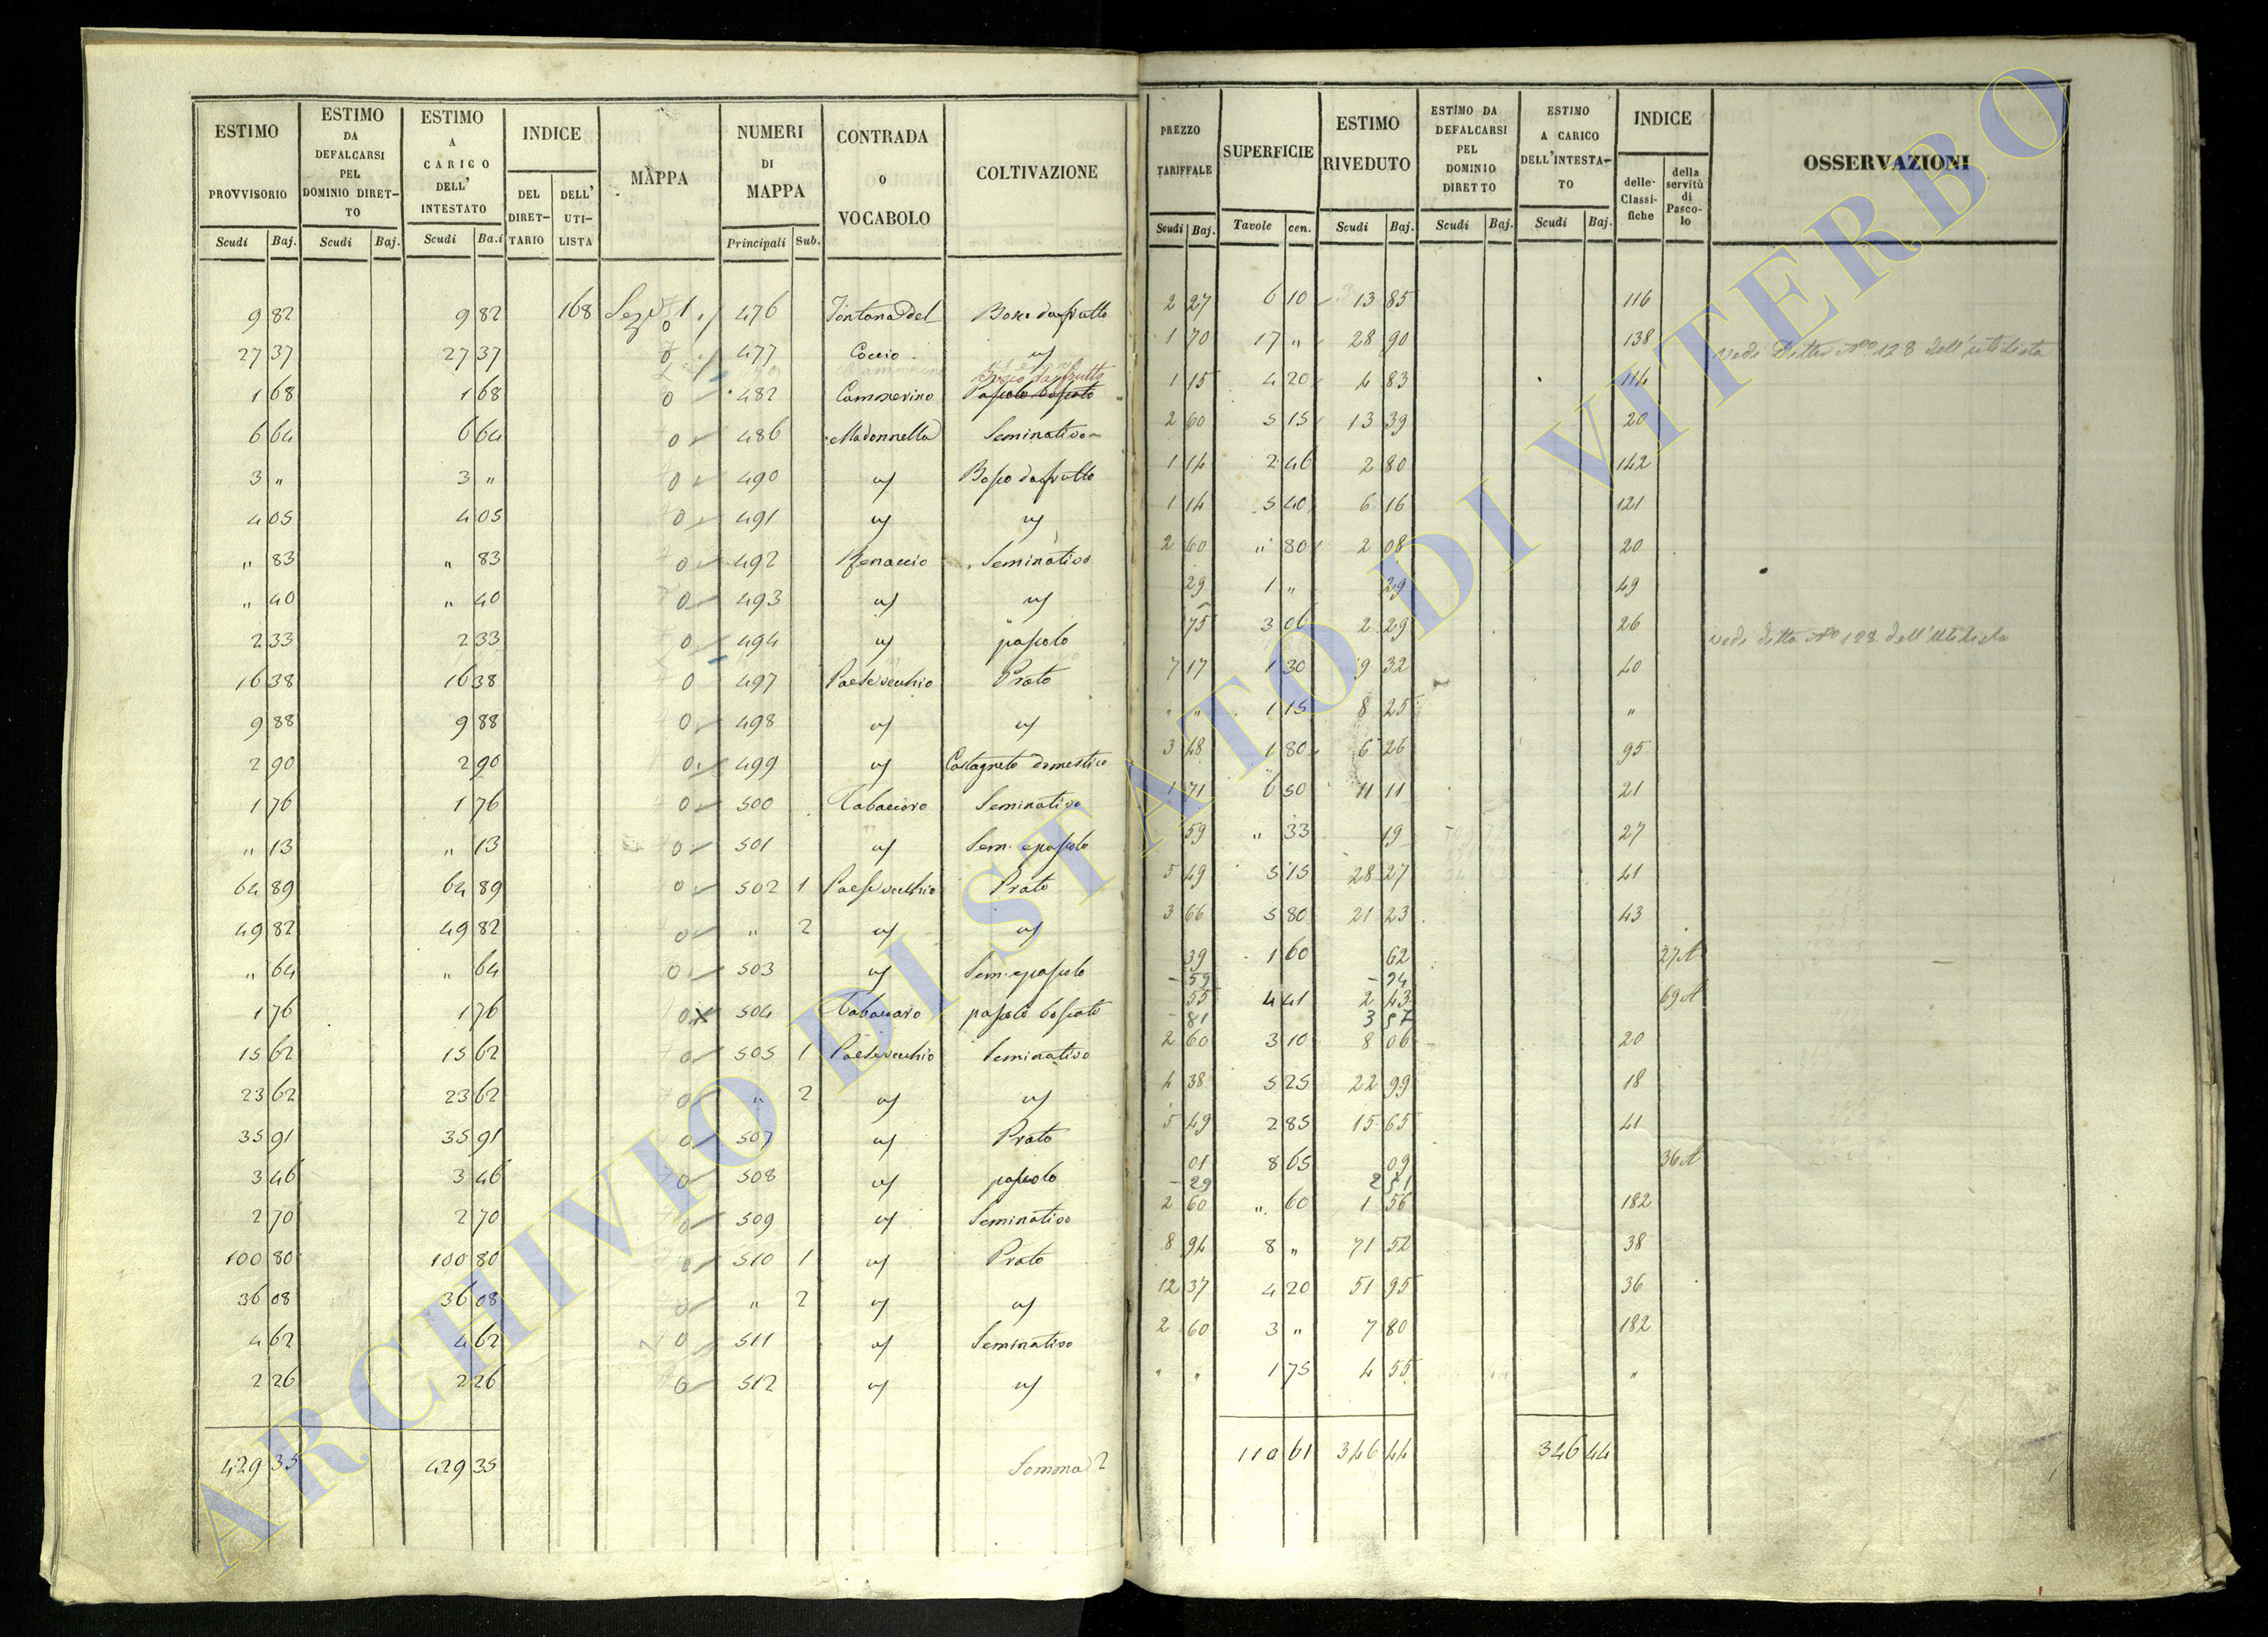 ESTIMO PROVVISORIO | ESTIMO DA DEFALCARSI PEL DOMINIO DIRETTO | ESTIMO A CARICO DELL' INTESTATO | INDICE | MAPPA | NUMERI DI MAPPA | CONTRADA O VOCABOLO | COLTIVAZIONE | PREZZO TARIFFALE | SUPERFICIE | ESTIMO RIVEDUTO | ESTIMO DA DEFALCARSI PEL DOMINIO DIRETTO | ESTIMO A CARICO DELL'INTESTATO | INDICE | OSSERVAZIONI
Scudi Baj. | Scudi Baj. | Scudi Ba.i | DEL DIRETTARIO | DELL' UTILISTA | Principali Sub. | Scudi Baj. | Tavole cen. | Scudi Baj. | Scudi Baj. | Scudi Baj. | delle Classifiche | della servitù di Pascolo
9 82 | 9 82 | 168 | 476 | Fontana del | Bosco da frutto | 2 27 | 6 10 | 13 85 | 116
27 37 | 27 37 | 0 | 477 | Coccio | 1 70 | 17 " | 28 90 | 138 | vedi Ditta No 128 dell'utilista
Bosco da frutto
1 68 | 1 68 | 0 | 482 | Cammerino | Pascolo boscato | 1 15 | 4 20 | 4 83 | 114
6 64 | 6 64 | 0 | 486 | Madonnella | Seminativo | 2 60 | 5 15 | 13 39 | 20
3 " | 3 " | 0 | 490 | " | Bosco da frutto | 1 14 | 2 46 | 2 80 | 142
4 05 | 4 05 | 0 | 491 | " | " | 1 14 | 5 40 | 6 16 | 121
" 83 | " 83 | 0 | 492 | Renaccio | Seminativo | 2 60 | " 80 | 2 08 | 20
" 40 | " 40 | 0 | 493 | " | " | 29 | 1 " | 29 | 49
2 33 | 2 33 | 0 | 494 | " | pascolo | 75 | 3 06 | 2 29 | 26 | vedi ditta No 128 dell'Utilista
16 38 | 16 38 | 0 | 497 | Paesevecchio | Prato | 7 17 | 1 30 | 9 32 | 40
9 88 | 9 88 | 0 | 498 | " | " | " " | 1 15 | 8 25 | "
2 90 | 2 90 | 0 | 499 | " | Castagneto domestico | 3 48 | 1 80 | 6 26 | 95
1 76 | 1 76 | 0 | 500 | Tabaccaro | Seminativo | 1 71 | 6 50 | 11 11 | 21
" 13 | " 13 | 0 | 501 | " | Sem. e pascolo | 59 | " 33 | 19 | 27
64 89 | 64 89 | 0 | 502 | 1 | Paesevecchio | Prato | 5 49 | 5 15 | 28 27 | 41
49 82 | 49 82 | 0 | " | 2 | " | " | 3 66 | 5 80 | 21 23 | 43
" 64 | " 64 | 0 | 503 | " | Sem. e pascolo | 39 | 1 60 | 62 | 27 A
- 59 | - 94
1 76 | 1 76 | 0 x | 504 | Tabaccaro | pascolo boscato | 55 | 4 41 | 2 43 | 69 A
- 81 | 3 57
15 62 | 15 62 | 0 | 505 | 1 | Paesevecchio | Seminativo | 2 60 | 3 10 | 8 06 | 20
23 62 | 23 62 | 0 | " | 2 | " | " | 4 38 | 5 25 | 22 99 | 18
35 91 | 35 91 | 0 | 507 | " | Prato | 5 49 | 2 85 | 15 65 | 41
3 46 | 3 46 | 0 | 508 | " | pascolo | 01 | 8 65 | 09 | 36 A
- 29 | 2 51
2 70 | 2 70 | 0 | 509 | " | Seminativo | 2 60 | " 60 | 1 56 | 182
100 80 | 100 80 | 0 | 510 | 1 | " | Prato | 8 94 | 8 " | 71 52 | 38
36 08 | 36 08 | 0 | " | 2 | " | " | 12 37 | 4 20 | 51 95 | 36
4 62 | 4 62 | 0 | 511 | " | Seminativo | 2 60 | 3 " | 7 80 | 182
2 26 | 2 26 | 0 | 512 | " | " | " " | 1 75 | 4 55 | "
429 35 | 429 35 | Somma | 110 61 | 346 44 | 346 44
ARCHIVIO DI STATO DI VITERBO